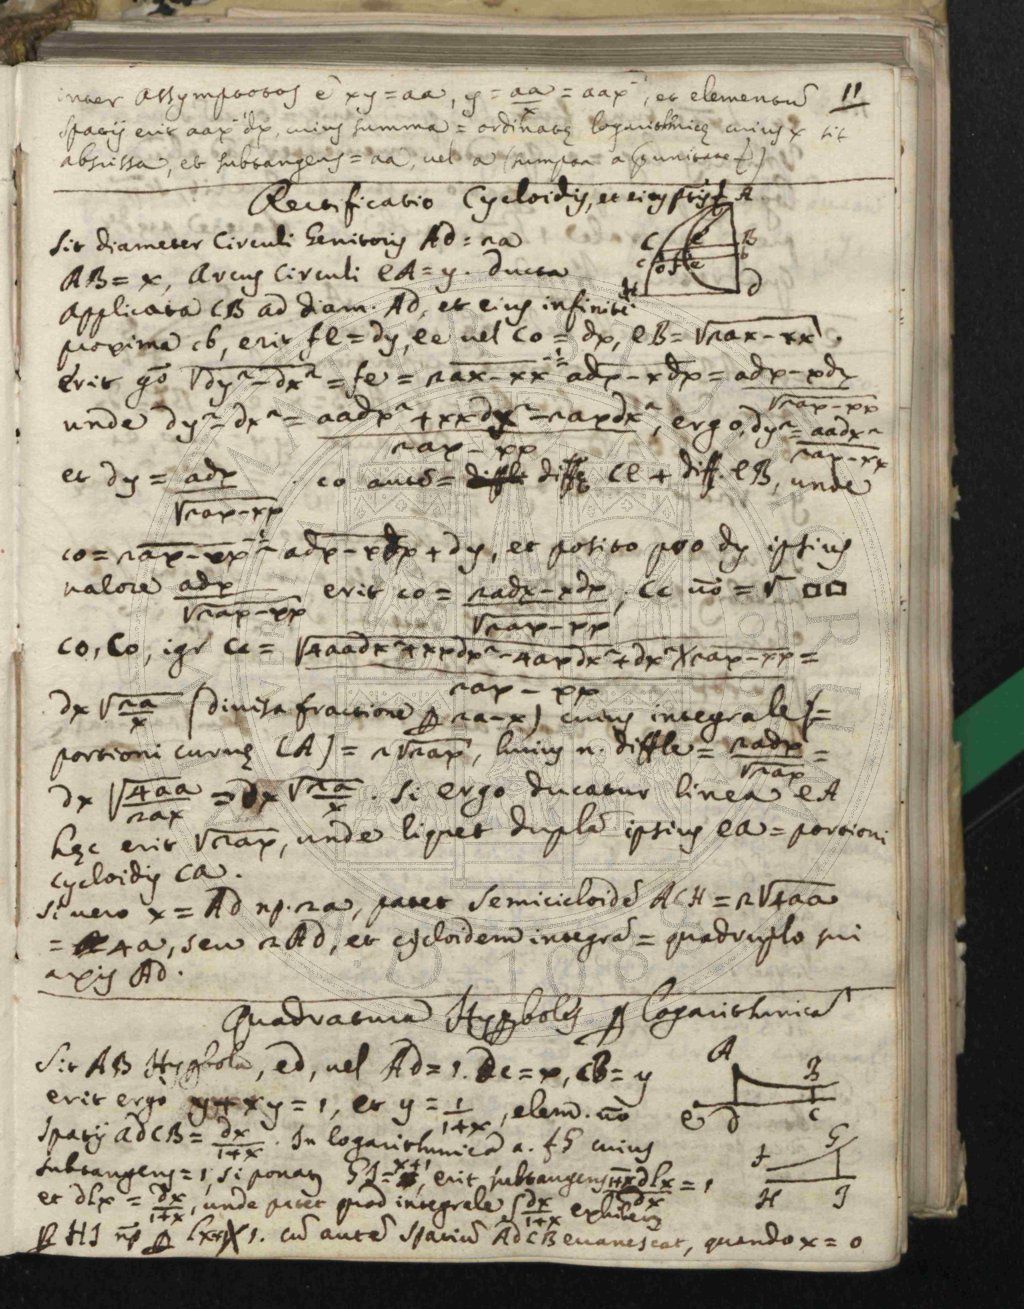 inter Assymptotos ē xy = aa, y = aa/x = aax⁻¹, et elementũ 11
spatij erit aax⁻¹dx, cuius summa = ordinatę logarithmicę cuius x sit
abscissa, et subtangens = aa, vel a (sumpta a pro unitate)
Rectificatio Cycloidis, et eius
Sit diameter Circuli Genitoris Ad = 2a
AB = x, Arcus Circuli eA = y. ducta
Applicata CB ad diam. Ad, et eius infinite
proxima cb, erit fe = dy, ee vel Co = dx, eB = √2ax-xx.
Erit go √dy²-dx² = fe = 2ax-xx^-½ adx-xdx = adx-xdx/√2ax-xx
unde dy²-dx² = aadx²+xxdx²-2axdx²/2ax-xx, ergo dy² = aadx²/2ax-xx
et dy = adx/√2ax-xx. co autē = diffę Ce + diff. eB, unde
co = 2ax-xx^-½ adx-xdx + dy, et posito pro dy ipsius
valore adx/√2ax-xx erit co = 2adx-xdx/√2ax-xx; Cc vō = √ □□
co, Co, igr Cc = √4aadx²+xxdx²-4axdx²+dx²×2ax-xx/2ax-xx =
dx√2a/x (divisa fractione p 2a-x) cuius integrale [=
portioni curvę CA] = 2√2ax, huius n. diffle = 2adx/√2ax =
dx√4aa/2ax = dx√2a/x. Si ergo ducatur linea eA
hęc erit √2ax, unde liquet duplã ipsius ea = portioni
cycloidis CA.
Si vero x = Ad np. 2a, patet Semicicloidē ACH = 2√4aa
= 4a, seu 2Ad, et cycloidem integrã = quadruplo sui
axis Ad.
Quadratura Hyperbolę p Logarithmicã
Sit AB Hyperbola, ed, vel Ad = 1. dc = x, CB = y
erit ergo y+xy = 1, et y = 1/1+x, elem. vō
Spatij AdCB = dx/1+x. In logarithmica a. fG cuius
subtangens = 1, si ponatr GI = x+1, erit subtangens 1+x dLx/dx = 1
et dLx = dx/1+x, unde patet quod integrale ∫dx/1+x exhibetr
p HI np p Lx+1. cũ autē Spatiũ AdCB evanescat, quando x = 0
A B e d C
f G H I